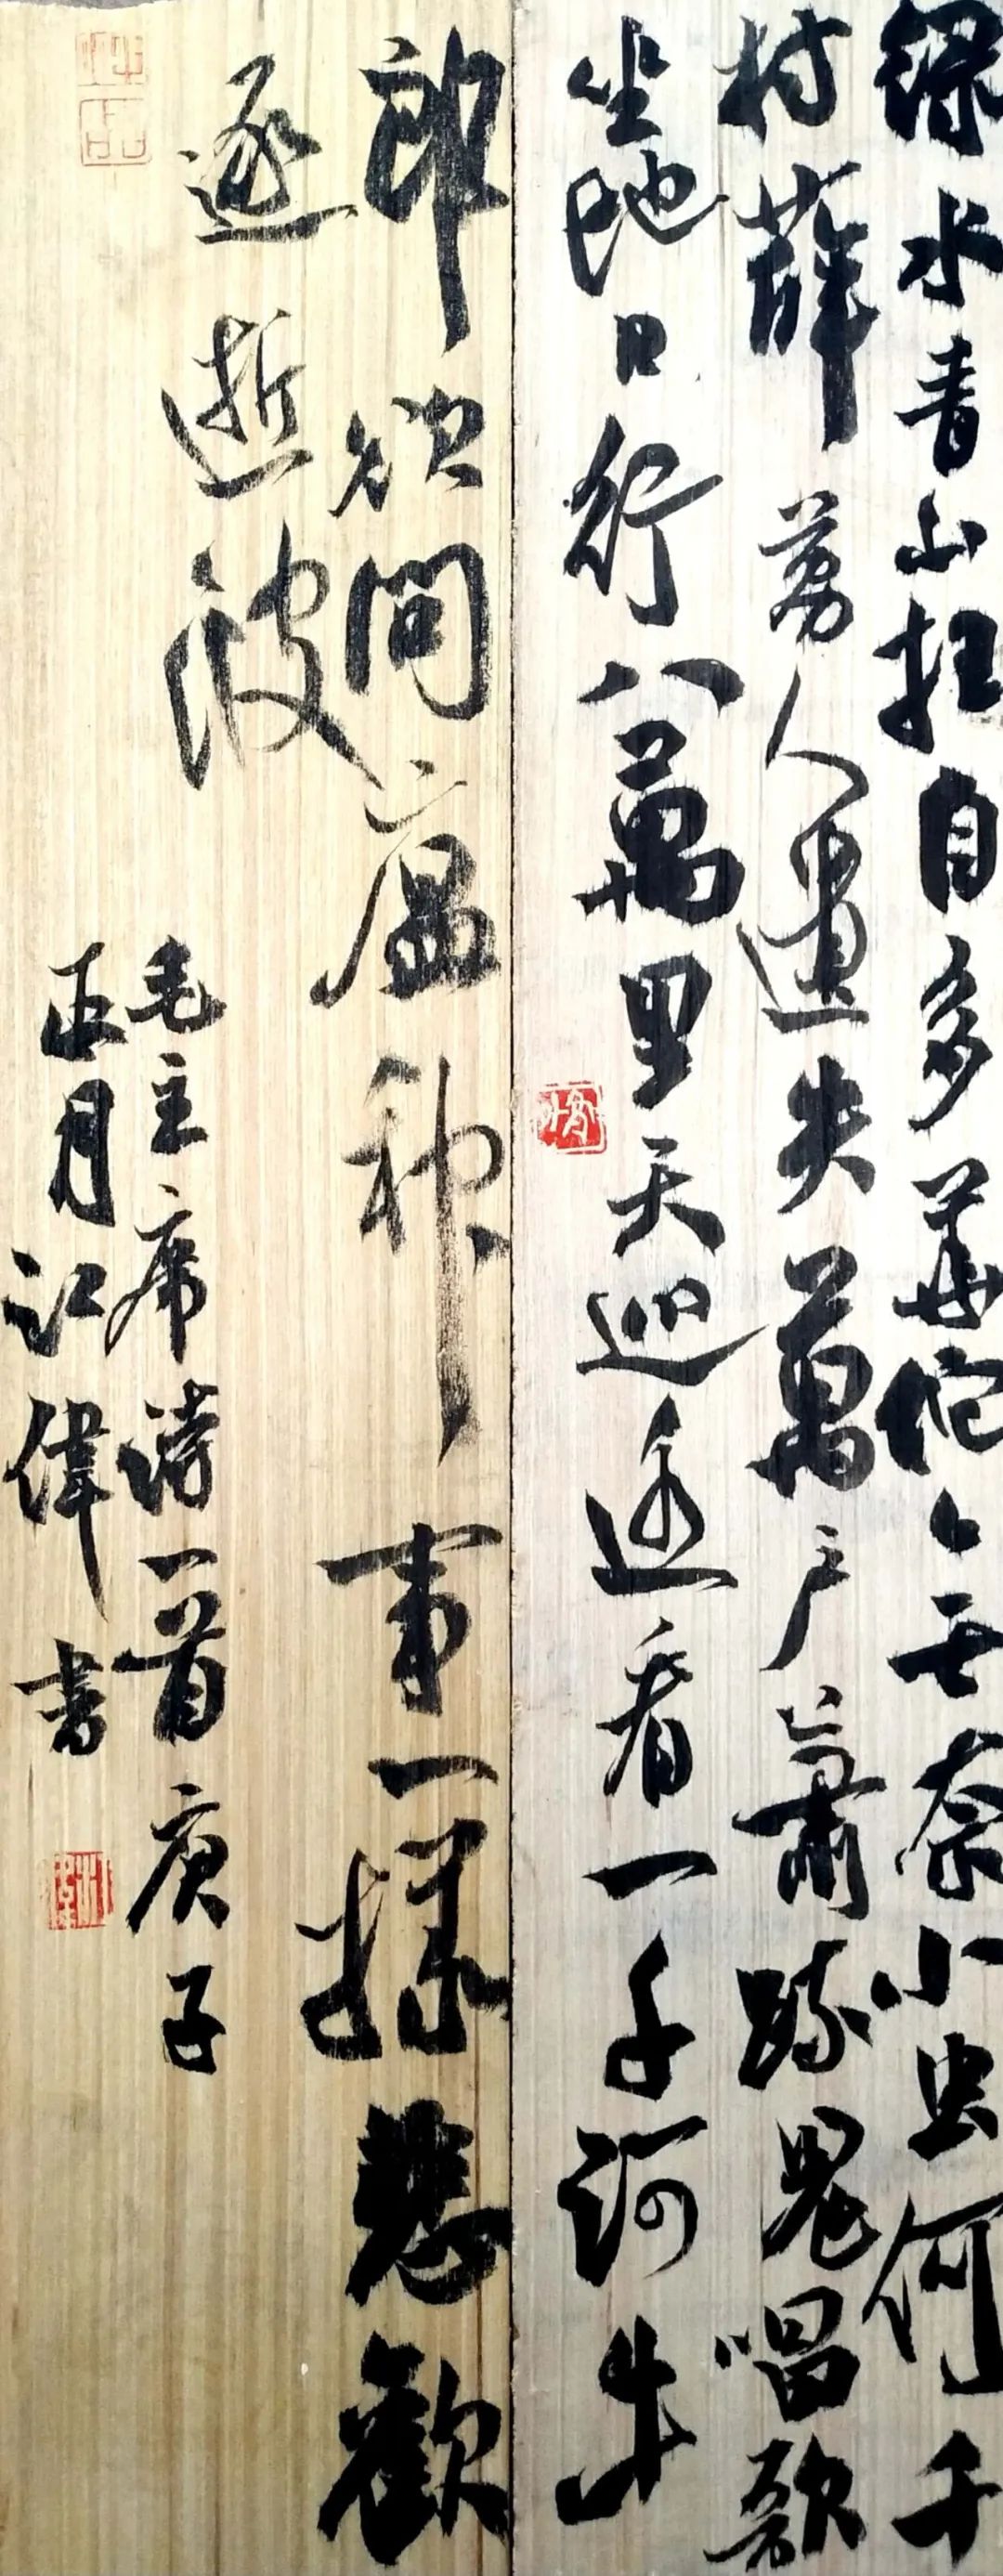 绿水青山枉自多華佗々无奈小虫何千
村薜荔人遺失萬户蕭疏鬼唱歌
坐地日行八萬里天巡遥看一千河牛
郎欲問瘟神事一樣悲歡
逐逝波
毛主席詩一首庚子
正月江偉書